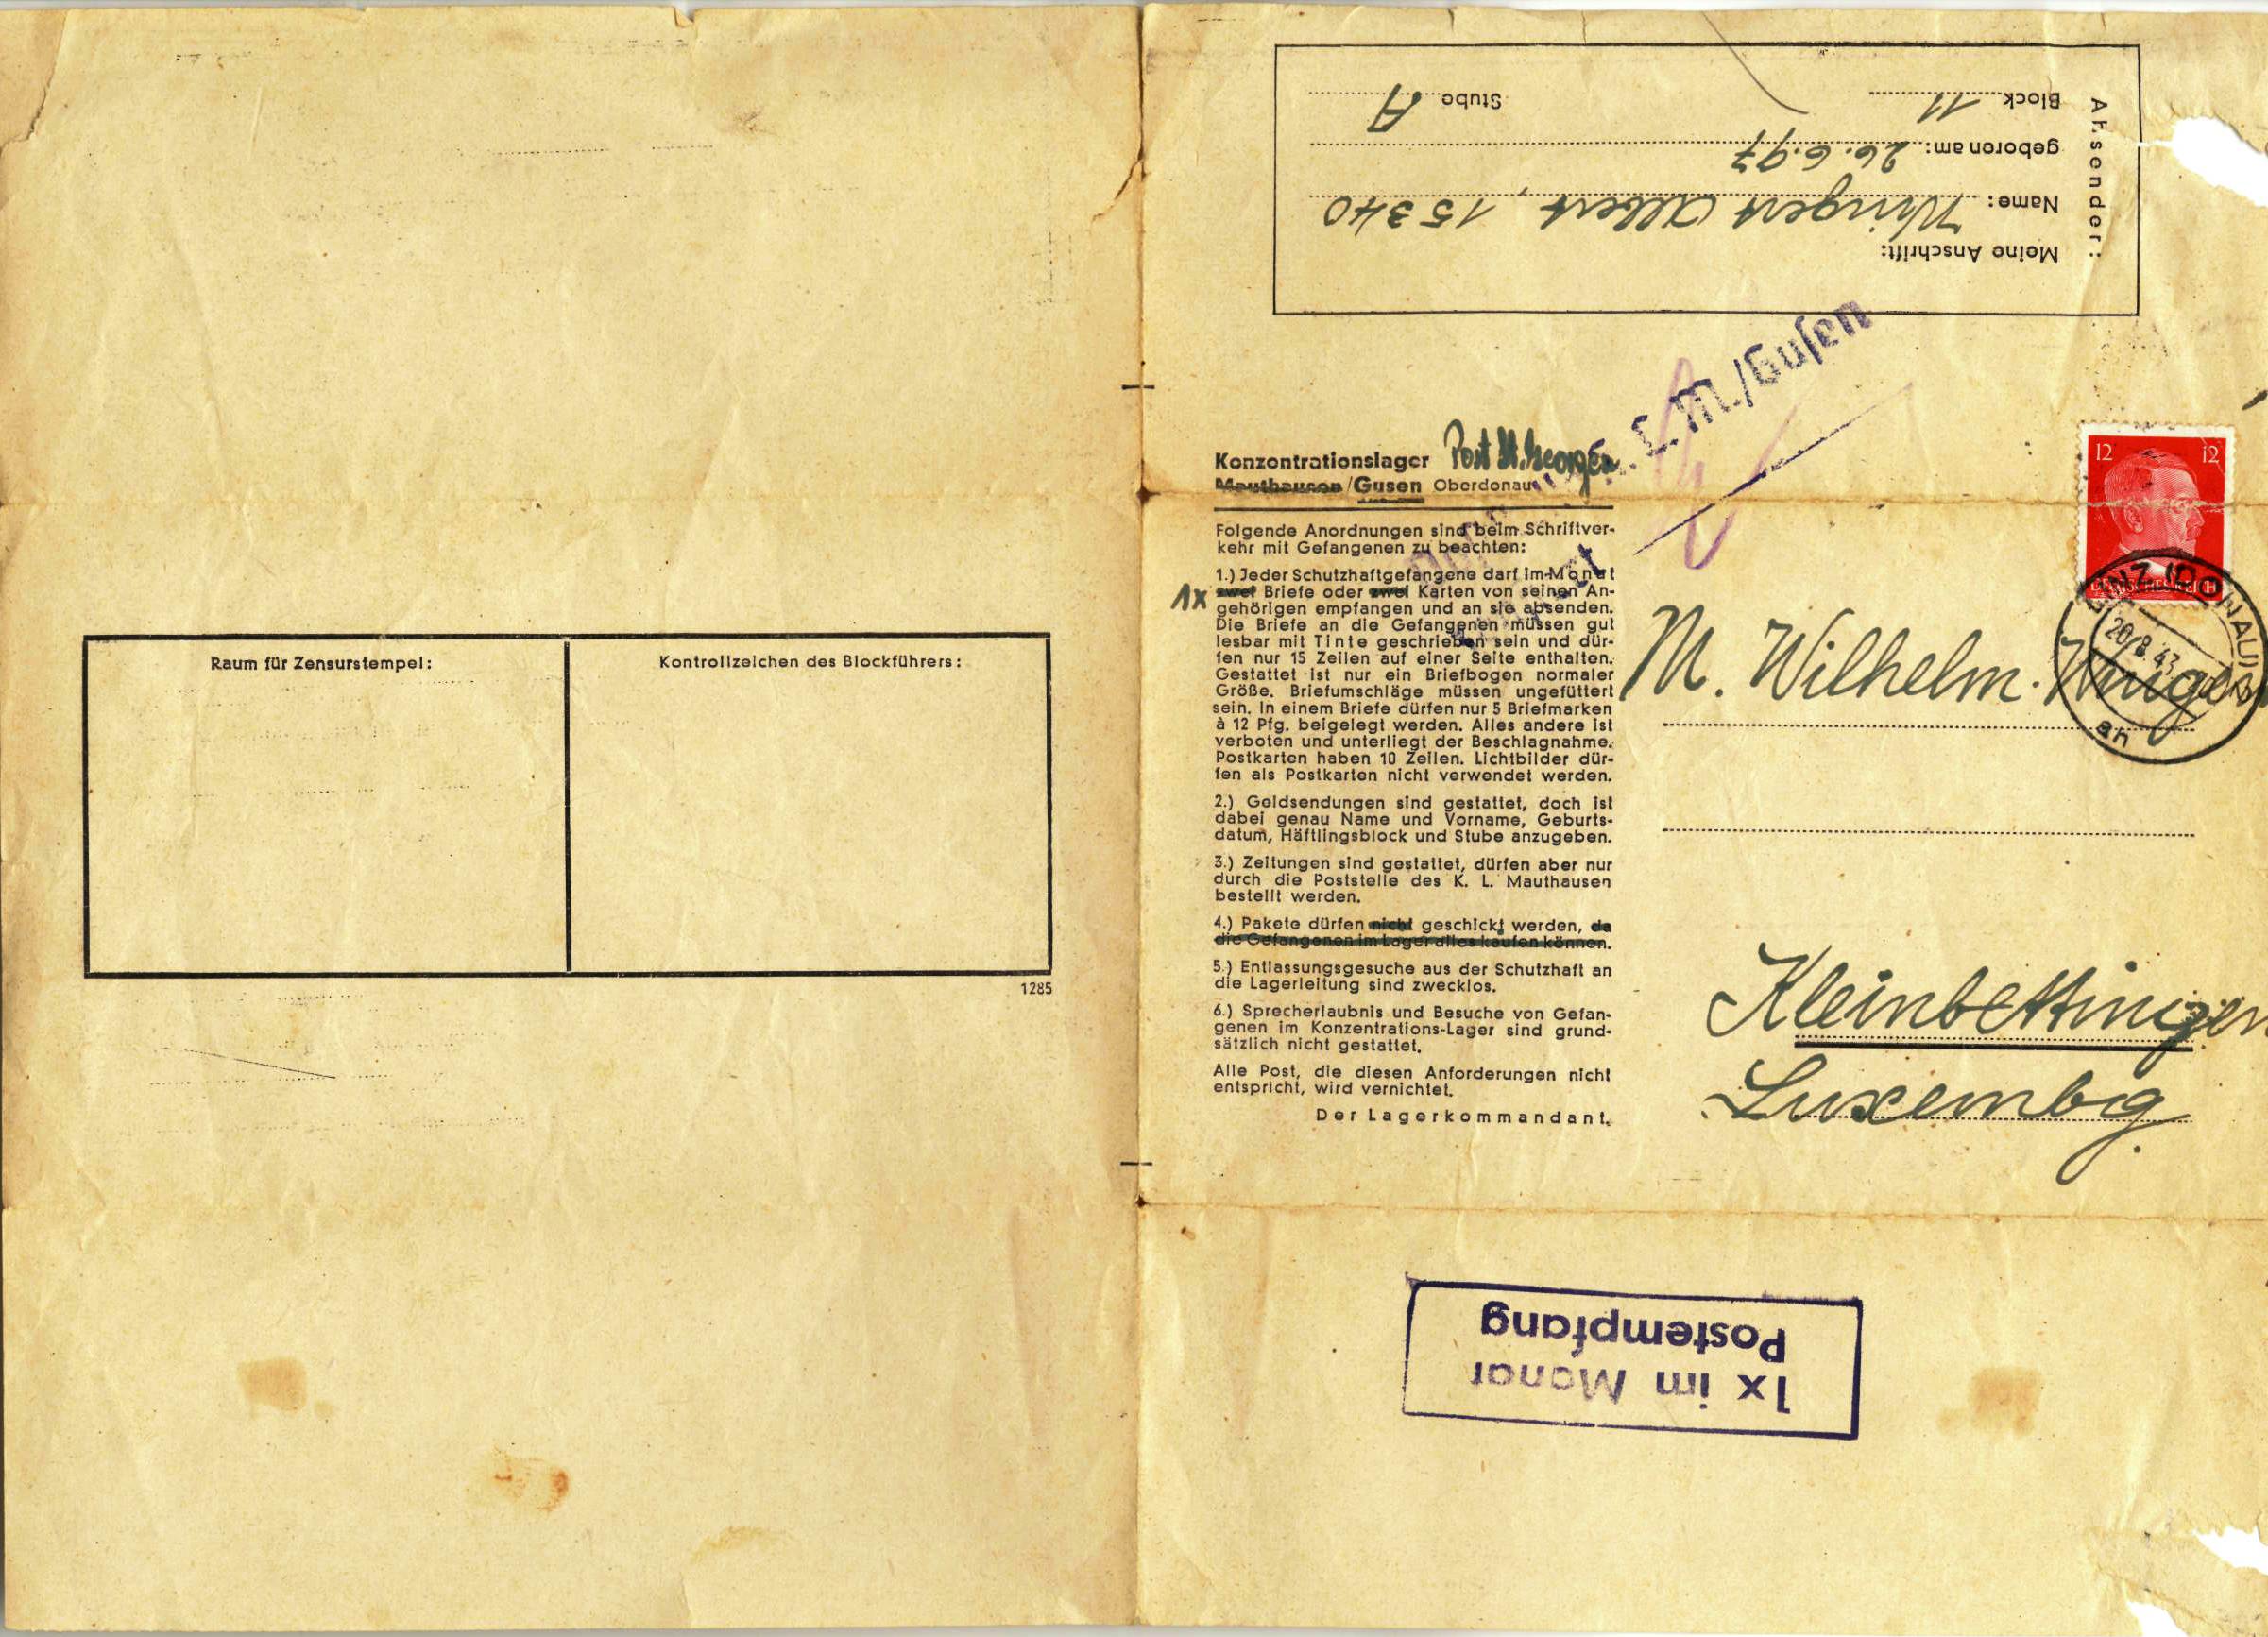 Raum für Zensurstempel:
Kontrollzeichen des Blockführers:
1285
Absender:
Meine Anschrift:
Name: Wingert Albert, 15340
geboren am: 26.6.97
Block 11 Stube A
K. L. M./Gusen
Konzentrationslager Post St. Georgen
Mauthausen/Gusen Oberdonau
Folgende Anordnungen sind beim Schriftver-
kehr mit Gefangenen zu beachten:
1.) Jeder Schutzhaftgefangene darf im Monat
1x zwei Briefe oder zwei Karten von seinen An-
gehörigen empfangen und an sie absenden.
Die Briefe an die Gefangenen müssen gut
lesbar mit Tinte geschrieben sein und dür-
fen nur 15 Zeilen auf einer Seite enthalten.
Gestattet ist nur ein Briefbogen normaler
Größe. Briefumschläge müssen ungefüttert
sein. In einem Briefe dürfen nur 5 Briefmarken
à 12 Pfg. beigelegt werden. Alles andere ist
verboten und unterliegt der Beschlagnahme.
Postkarten haben 10 Zeilen. Lichtbilder dür-
fen als Postkarten nicht verwendet werden.
2.) Geldsendungen sind gestattet, doch ist
dabei genau Name und Vorname, Geburts-
datum, Häftlingsblock und Stube anzugeben.
3.) Zeitungen sind gestattet, dürfen aber nur
durch die Poststelle des K. L. Mauthausen
bestellt werden.
4.) Pakete dürfen nicht geschickt werden, da
die Gefangenen im Lager alles kaufen können.
5.) Entlassungsgesuche aus der Schutzhaft an
die Lagerleitung sind zwecklos.
6.) Sprecherlaubnis und Besuche von Gefan-
genen im Konzentrations-Lager sind grund-
sätzlich nicht gestattet.
Alle Post, die diesen Anforderungen nicht
entspricht, wird vernichtet.
Der Lagerkommandant.
12 12
DEUTSCHES REICH
LINZ (DONAU)
20.8.43
an
M. Wilhelm. Winger
Kleinbettingen
Luxembg.
1x im Monat
Postempfang